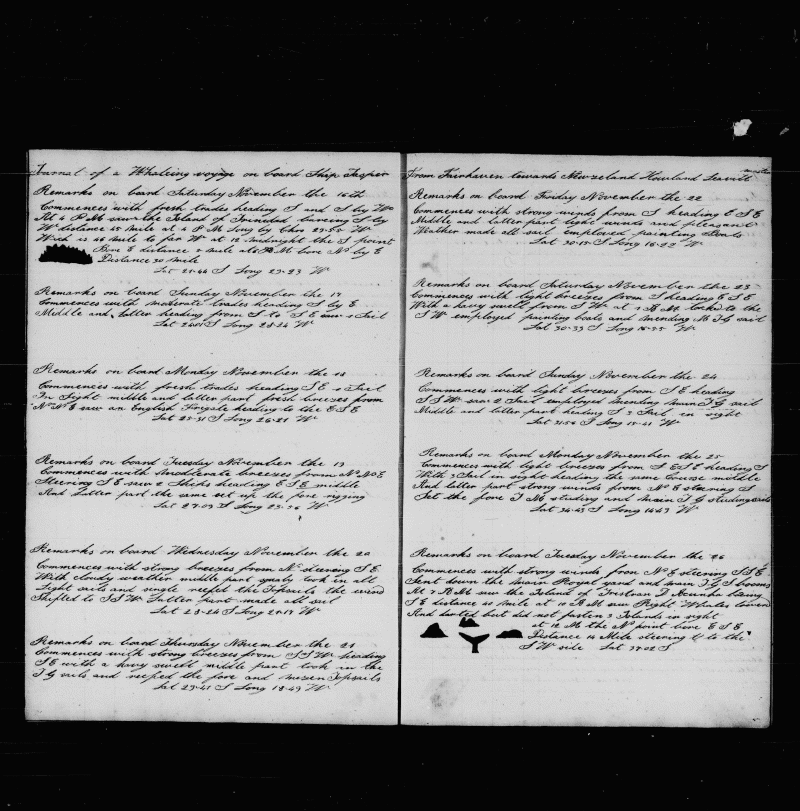 Jurnal of a Whaleing voyage on board Ship Jasper
Remarks on board Saturday November the 16th
Commences with fresh trades heading S and S by W
At 4 P M saw the Island of Trinidad bareing S by
W distance 45 mile at 4 P M Long by Chro
Wich is 46 mile to far W at 12 midnight the S point
Bore E distance 8 mile at 6 M bore N by E
Distance 30 mile
Lat 21-44 S Long 29-23 W
Remarks on board Sunday November the 17
Commences with moderate trades heading S by E
Middle and Latter heading from S to S E saw 1 Sail
Lat S Long 28-24 W
Remarks on board Monday November the 18
Commences with fresh trades heading S E 1 Sail
In Sight middle and latter part fresh breezes from
N N E saw an English Frigate heading to the E S E
Lat 25-31 S Long 26-21 W
Remarks on board Tuesday November the 19
Commences with Moderate breezes from N N E
Steering S E saw 2 Ships heading E S E middle
And Latter part the same set up the fore rigging
Lat 27-09 S Long 23-36 W
Remarks on board Wednesday November the 20
Commences with strong breezes from N steering S E
With cloudy weather middle part squaly took in all
Light sails and single reefed the Topsails the wind
Shifted to S S W Latter part made all sail
Lat 28-24 S Long 21-17 W
Remarks on board Thursday November the 21
Commences with strong breezes from S S W heading
S E with a havy swell middle part took in the
T G sails and reefed the fore and mizen Topsails
Lat 29-41 S Long 18-49 W
From Fairhaven towards Newzeland Howland Leavitt master
Remarks on board Friday November the 22
Commences with strong winds from S heading E S E
Middle and latter part light winds and pleasant
Weather made all sail employed painting Boats
Lat 30-15 S Long 16-22 W
Remarks on board Saturday November the 23
Commences with light breezes from S heading E S E
With a havy swell from S W at 1 P M tacked to the
S W employed painting boats and mending M T G sail
Lat 30-33 S Long 15-35 W
Remarks on board Sunday November the 24
Commences with light breezes from S E heading
S S W saw 2 Sail employed mending main T G sail
Middle and latter part heading S 3 Sail in sight
Lat 31-56 S Long 15-41 W
Remarks on board Monday November the 25
Commences with light breezes from S E S E heading S
With 3 Sail in sight heading the same Course middle
And latter part strong winds from N E steering S
Set the fore T M studing and main T G studingsails
Lat 34-43 S Long 14-43 W
Remarks on board Tuesday November the 26
Commences with strong winds from N E steering S S E
Sent down the main Royal yard and main T G S booms
At 7 A M saw the Island of Tristran D Acunha baring
S E distance 40 mile at 10 A M saw Right Whales lowered
And darted but did not fasten 3 Islands in sight
at 12 M the N point bore E S E
Distance 14 Mile steering to the
S W side Lat 37-02 S